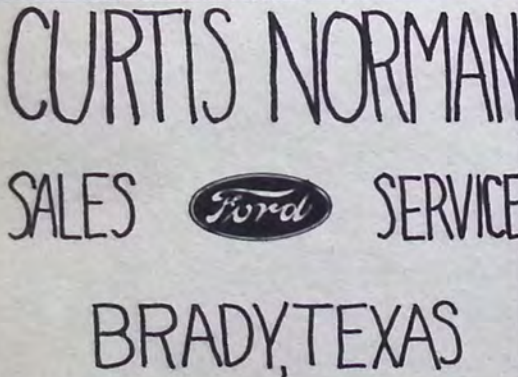 CURTIS NORMAN
SALES Ford SERVICE
BRADY, TEXAS